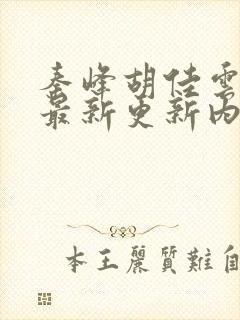 秦峰胡佳雲
最新更新內
本王麗質難自